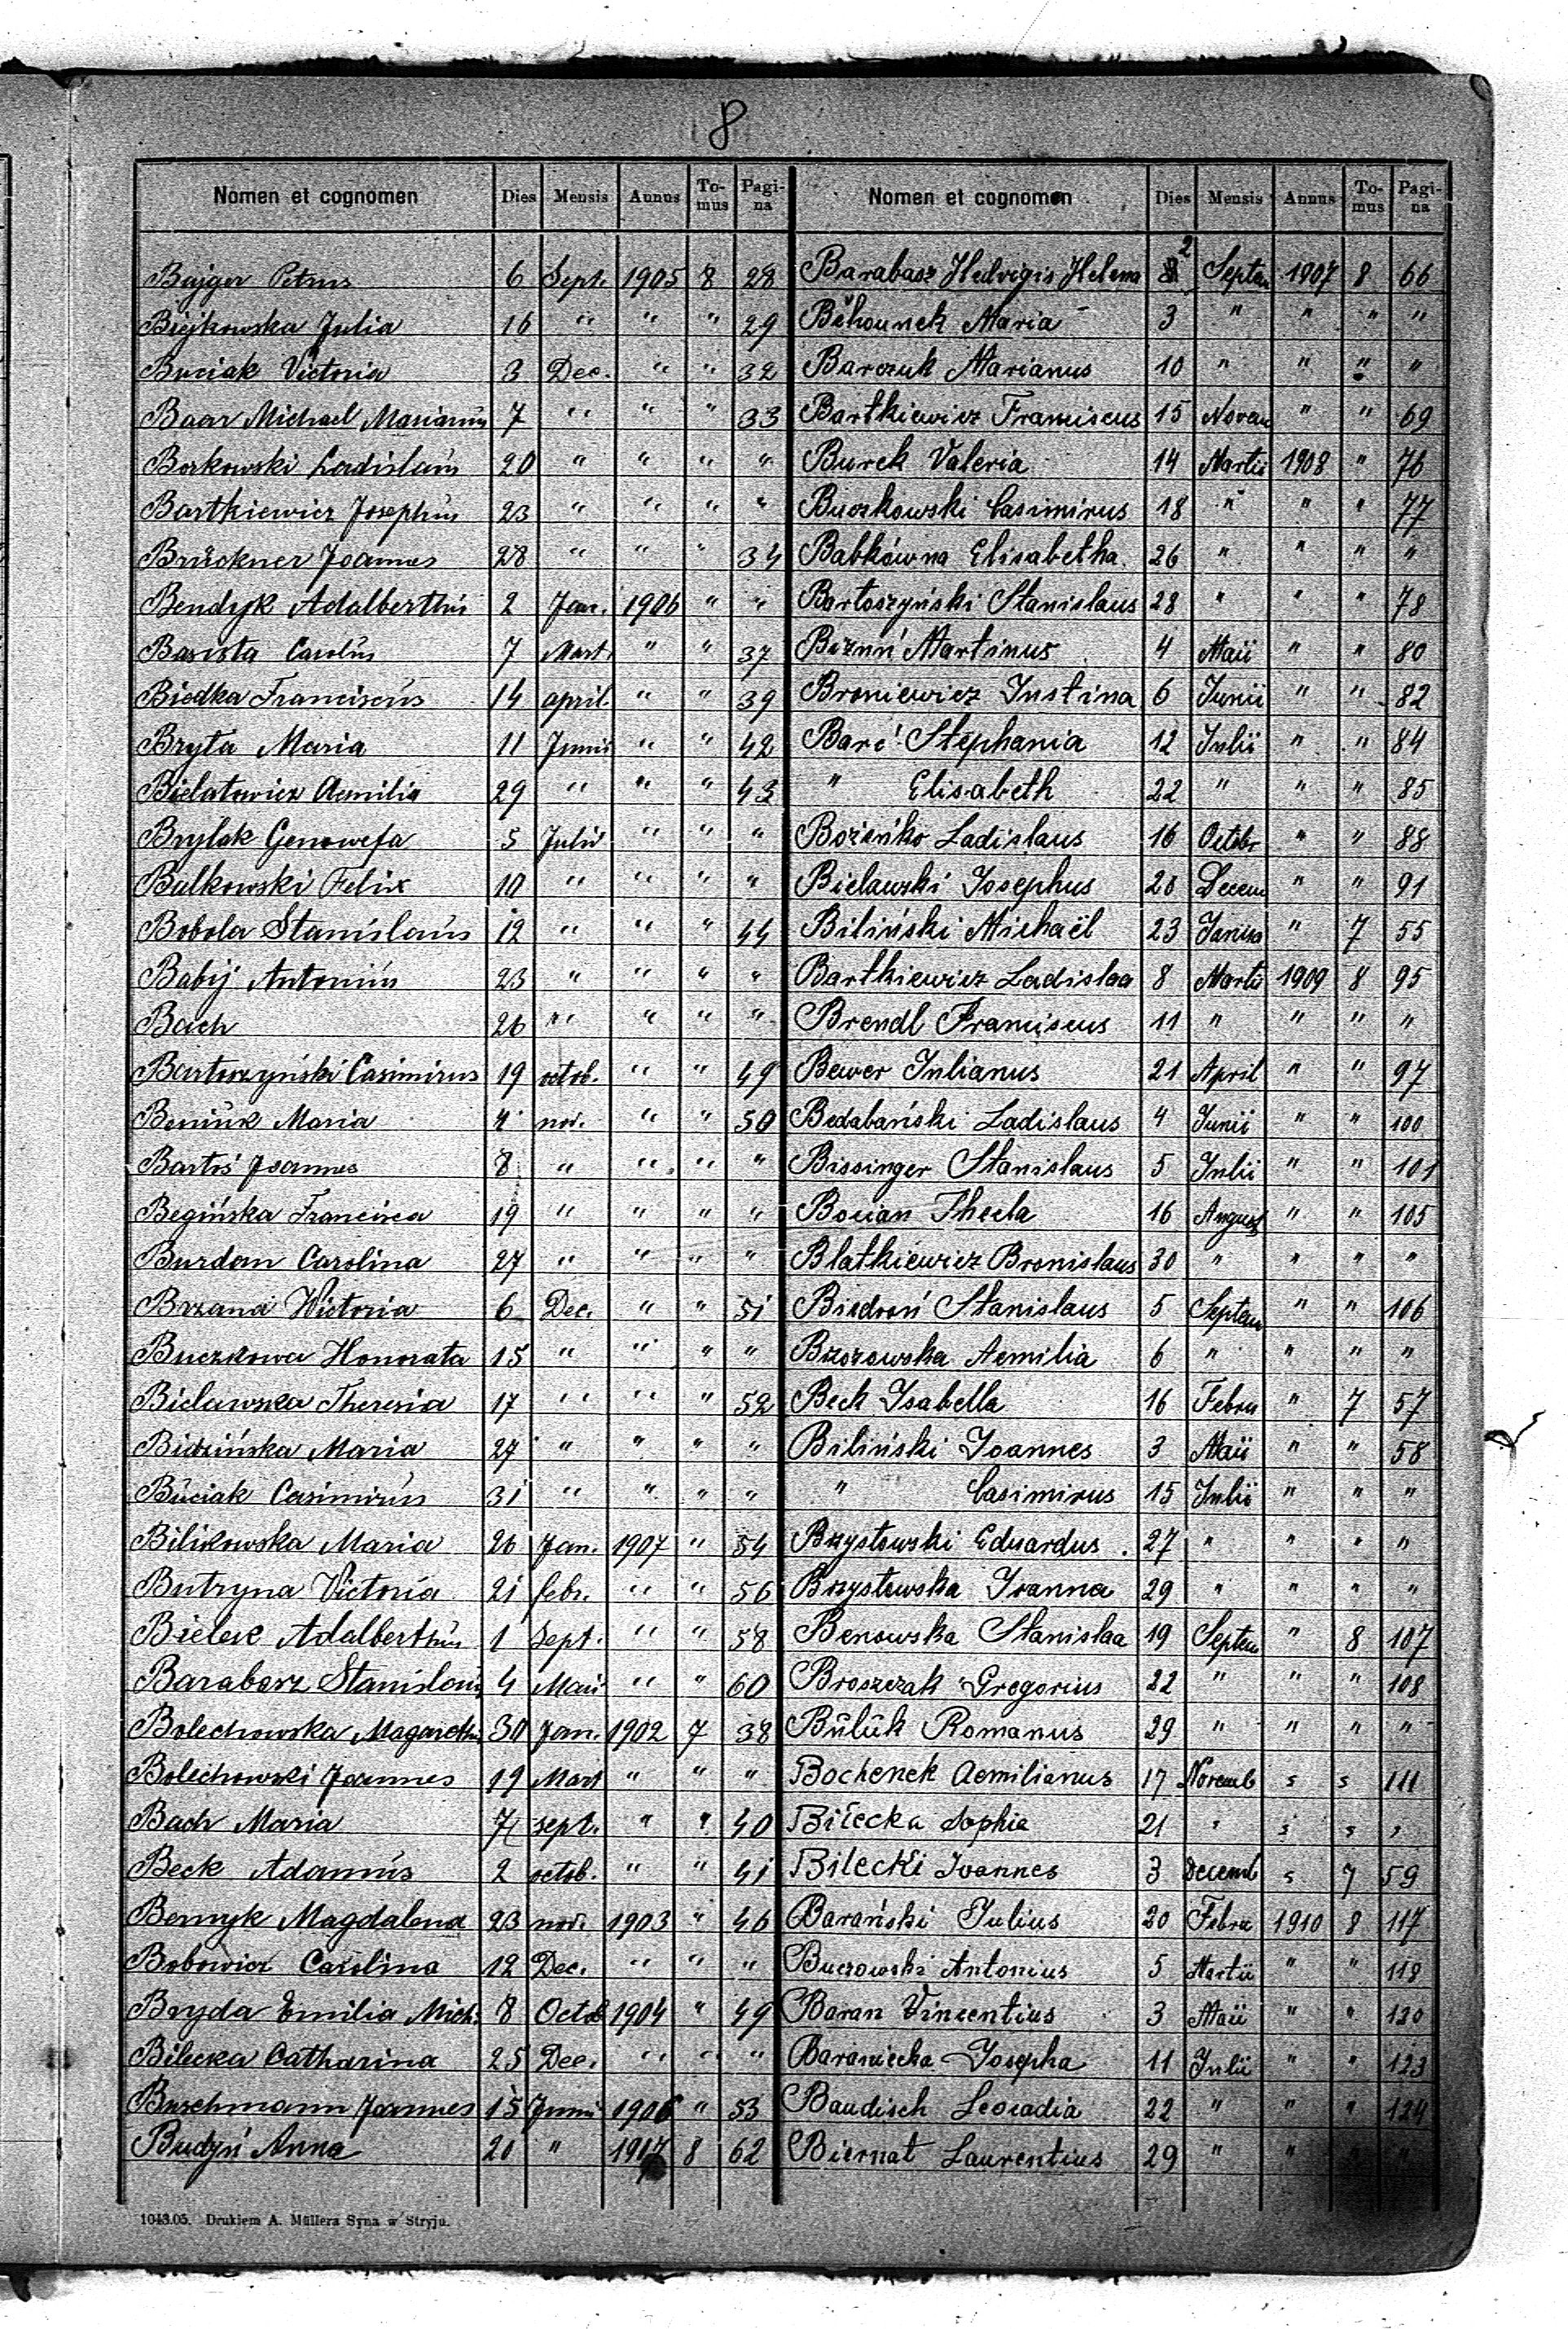 8
Nomen et cognomen Dies Mensis Annus To-mus Pagi-na
Bajger Petrus 6 Sept. 1905 8 28
Biejkowska Julia 16 " " " 29
Buciak Victoria 3 Dec. " " 32
Baar Michael Marianus 7 " " " 33
Borkowski Ladislaus 20 " " " "
Bartkiewicz Josephus 23 " " " "
Brückner Joannes 28 " " " 34
Bendyk Adalberthus 2 Jan. 1906 " "
Basista Carolus 7 Mart. " " 37
Biedka Franciscus 14 april. " " 39
Bryta Maria 11 Junii " " 42
Bielatowicz Aemilia 29 " " " 43
Brylak Genowefa 5 Julii " " "
Bulkowski Felix 10 " " " "
Bobola Stanislaus 12 " " " 44
Babij Antonius 23 " " " "
Bach 26 " " " "
Bartoszyński Casimirus 19 octob. " " 49
Beniuk Maria 4 nov. " " 50
Bartoś Joannes 8 " " " "
Begińska Francisca 19 " " " "
Burdan Carolina 27 " " " "
Brzana Wictoria 6 Dec. " " 51
Buczkowa Honorata 15 " " " "
Bielawska Theresia 17 " " " 52
Bidzińska Maria 27 " " " "
Buciak Casimirus 31 " " " "
Bilikowska Maria 26 Jan. 1907 " 54
Butryna Victoria 21 febr. " " 56
Bielec Adalberthus 1 Sept. " " 58
Barabasz Stanislaus 4 Maii " " 60
Bolechowska Magaretha 30 Jan. 1902 7 38
Bolechowski Joannes 19 Mart " " "
Bach Maria 7 sept. " " 40
Beck Adamus 2 octob. " " 41
Bernyk Magdalena 23 nov. 1903 " 46
Bobowicz Carolina 12 Dec. " " "
Bryda Emilia Mich: 8 Octob 1904 " 49
Bilecka Catharina 25 Dec. " " "
Buschmann Joannes 15 Junii 1906 " 53
Budzyń Anna 20 " 1907 8 62
Nomen et cognomen Dies Mensis Annus To-mus Pagi-na
Barabasz Hedvigis Helena 2 Septem 1907 8 66
Běhounek Maria 3 " " " "
Barczuk Marianus 10 " " " "
Bartkiewicz Franciscus 15 Novem " " 69
Burek Valeria 14 Martii 1908 " 76
Buczkowski Casimirus 18 " " " 77
Babkówna Elisabetha 26 " " " "
Bartoszyński Stanislaus 28 " " " 78
Bizuń Martinus 4 Maii " " 80
Broniewicz Justina 6 Junii " " 82
Barć Stephania 12 Julii " " 84
" Elisabeth 22 " " " 85
Bożeńko Ladislaus 16 Octobr " " 88
Bielawski Josephus 28 Decem " " 91
Biliński Michaël 23 Janua " 7 55
Bartkiewicz Ladislaa 8 Martii 1909 8 95
Brendl Franciscus 11 " " " "
Bewer Julianus 21 April " " 97
Bedabański Ladislaus 4 Junii " " 100
Bissinger Stanislaus 5 Julii " " 101
Bocian Thecla 16 August " " 105
Blatkiewicz Bronislaus 30 " " " "
Biedroń Stanislaus 5 Septem " " 106
Brzozowska Aemilia 6 " " " "
Beck Isabella 16 Febru " 7 57
Biliński Joannes 3 Maii " " 58
" Casimirus 15 Julii " " "
Brzystowski Eduardus 27 " " " "
Brzystowska Joanna 29 " " " "
Benowska Stanislaa 19 Septem " 8 107
Broszczak Gregorius 22 " " " 108
Buluk Romanus 29 " " " "
Bochenek Aemilianus 17 Novemb " " 111
Biłecka Sophia 21 " " " "
Bilecki Joannes 3 Decemb " 7 59
Barański Julius 20 Febru 1910 8 117
Buczowski Antonius 5 Martii " " 118
Baran Vincentius 3 Maii " " 120
Baraniecka Josepha 11 Julii " " 123
Baudisch Leocadia 22 " " " 124
Biernat Laurentius 29 " " " "
1043.05. Drukiem A. Müllera Syna w Stryju.